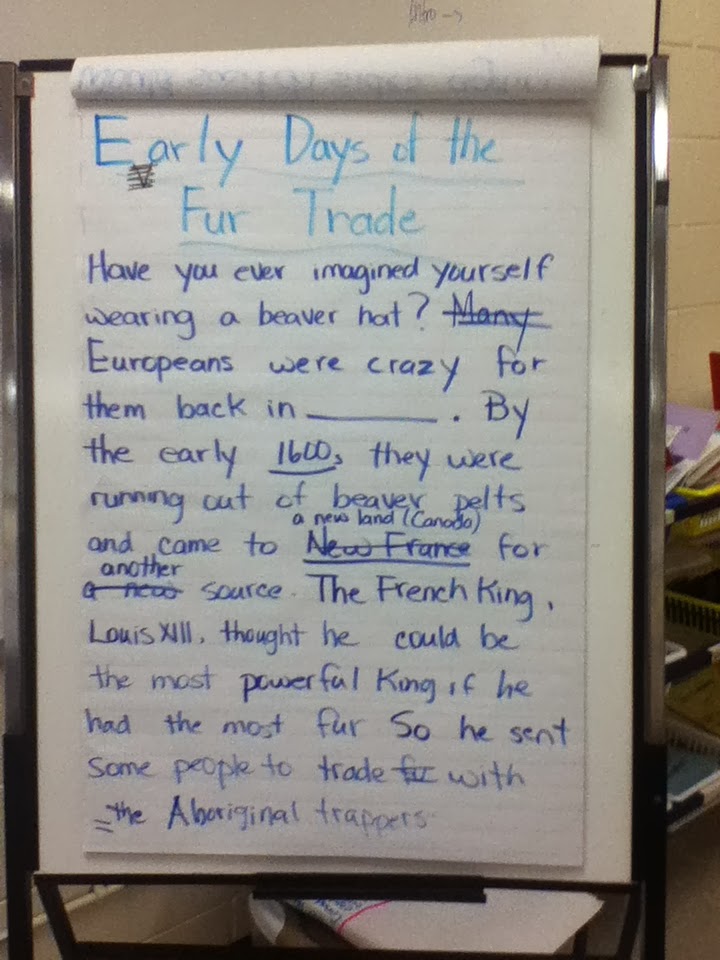 Intro →
Early Days of the
Fur Trade
Have you ever imagined yourself
wearing a beaver hat? ~~Many~~
Europeans were crazy for
them back in ________. By
the early 1600s they were
running out of beaver pelts
a new land (Canada)
and came to ~~New France~~ for
another
~~a new~~ source. The French King,
Louis XIII, thought he could be
the most powerful King if he
had the most fur So he sent
some people to trade ~~fur~~ with
the Aboriginal trappers.